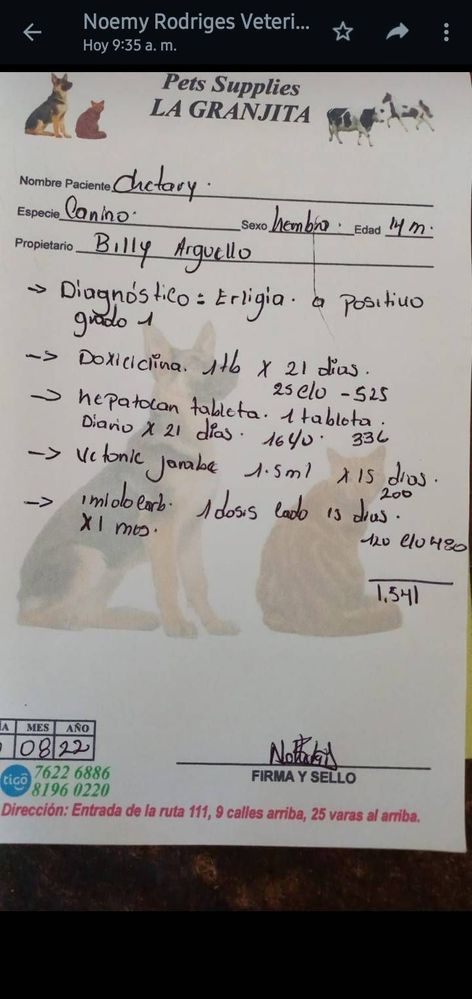 Noemy Rodriges Veteri...
Hoy 9:35 a. m.
Pets Supplies
LA GRANJITA
Nombre Paciente Chetary.
Especie Canino. Sexo hembra. Edad 14 m.
Propietario Billy Arguello
-> Diagnóstico: Erligia. a positivo
grado 1
-> Doxiciclina. 1tb x 21 dias.
25 c/o - 525
-> hepatocan tableta. 1 tableta.
Diario x 21 dias. 16 c/o. 336
-> Vetonic jarabe 1.5ml x 15 dias.
200
-> imidocarb. 1 dosis cado 15 dias.
x 1 mes.
120 c/o 480
1,541
A MES AÑO
08 22
FIRMA Y SELLO
tigo 7622 6886
8196 0220
Dirección: Entrada de la ruta 111, 9 calles arriba, 25 varas al arriba.